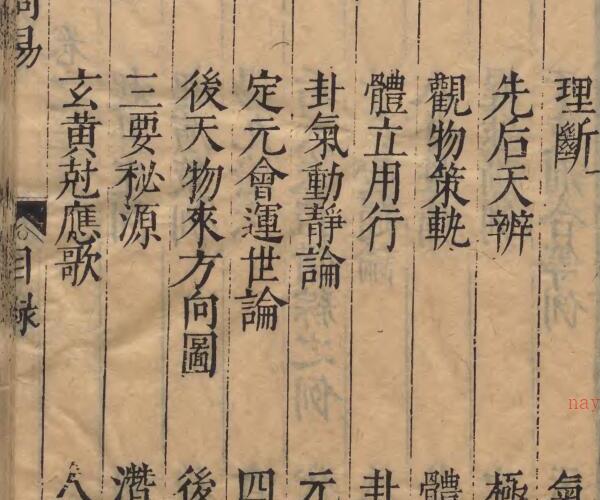 理斷
先后天辨
觀物策軌
體立用行
卦氣動靜論
定元會運世論
後天物來方向圖
三要秘源
玄黃尅應歌
氣
極
體
卦
元
四
後
潛
易
目録
nay